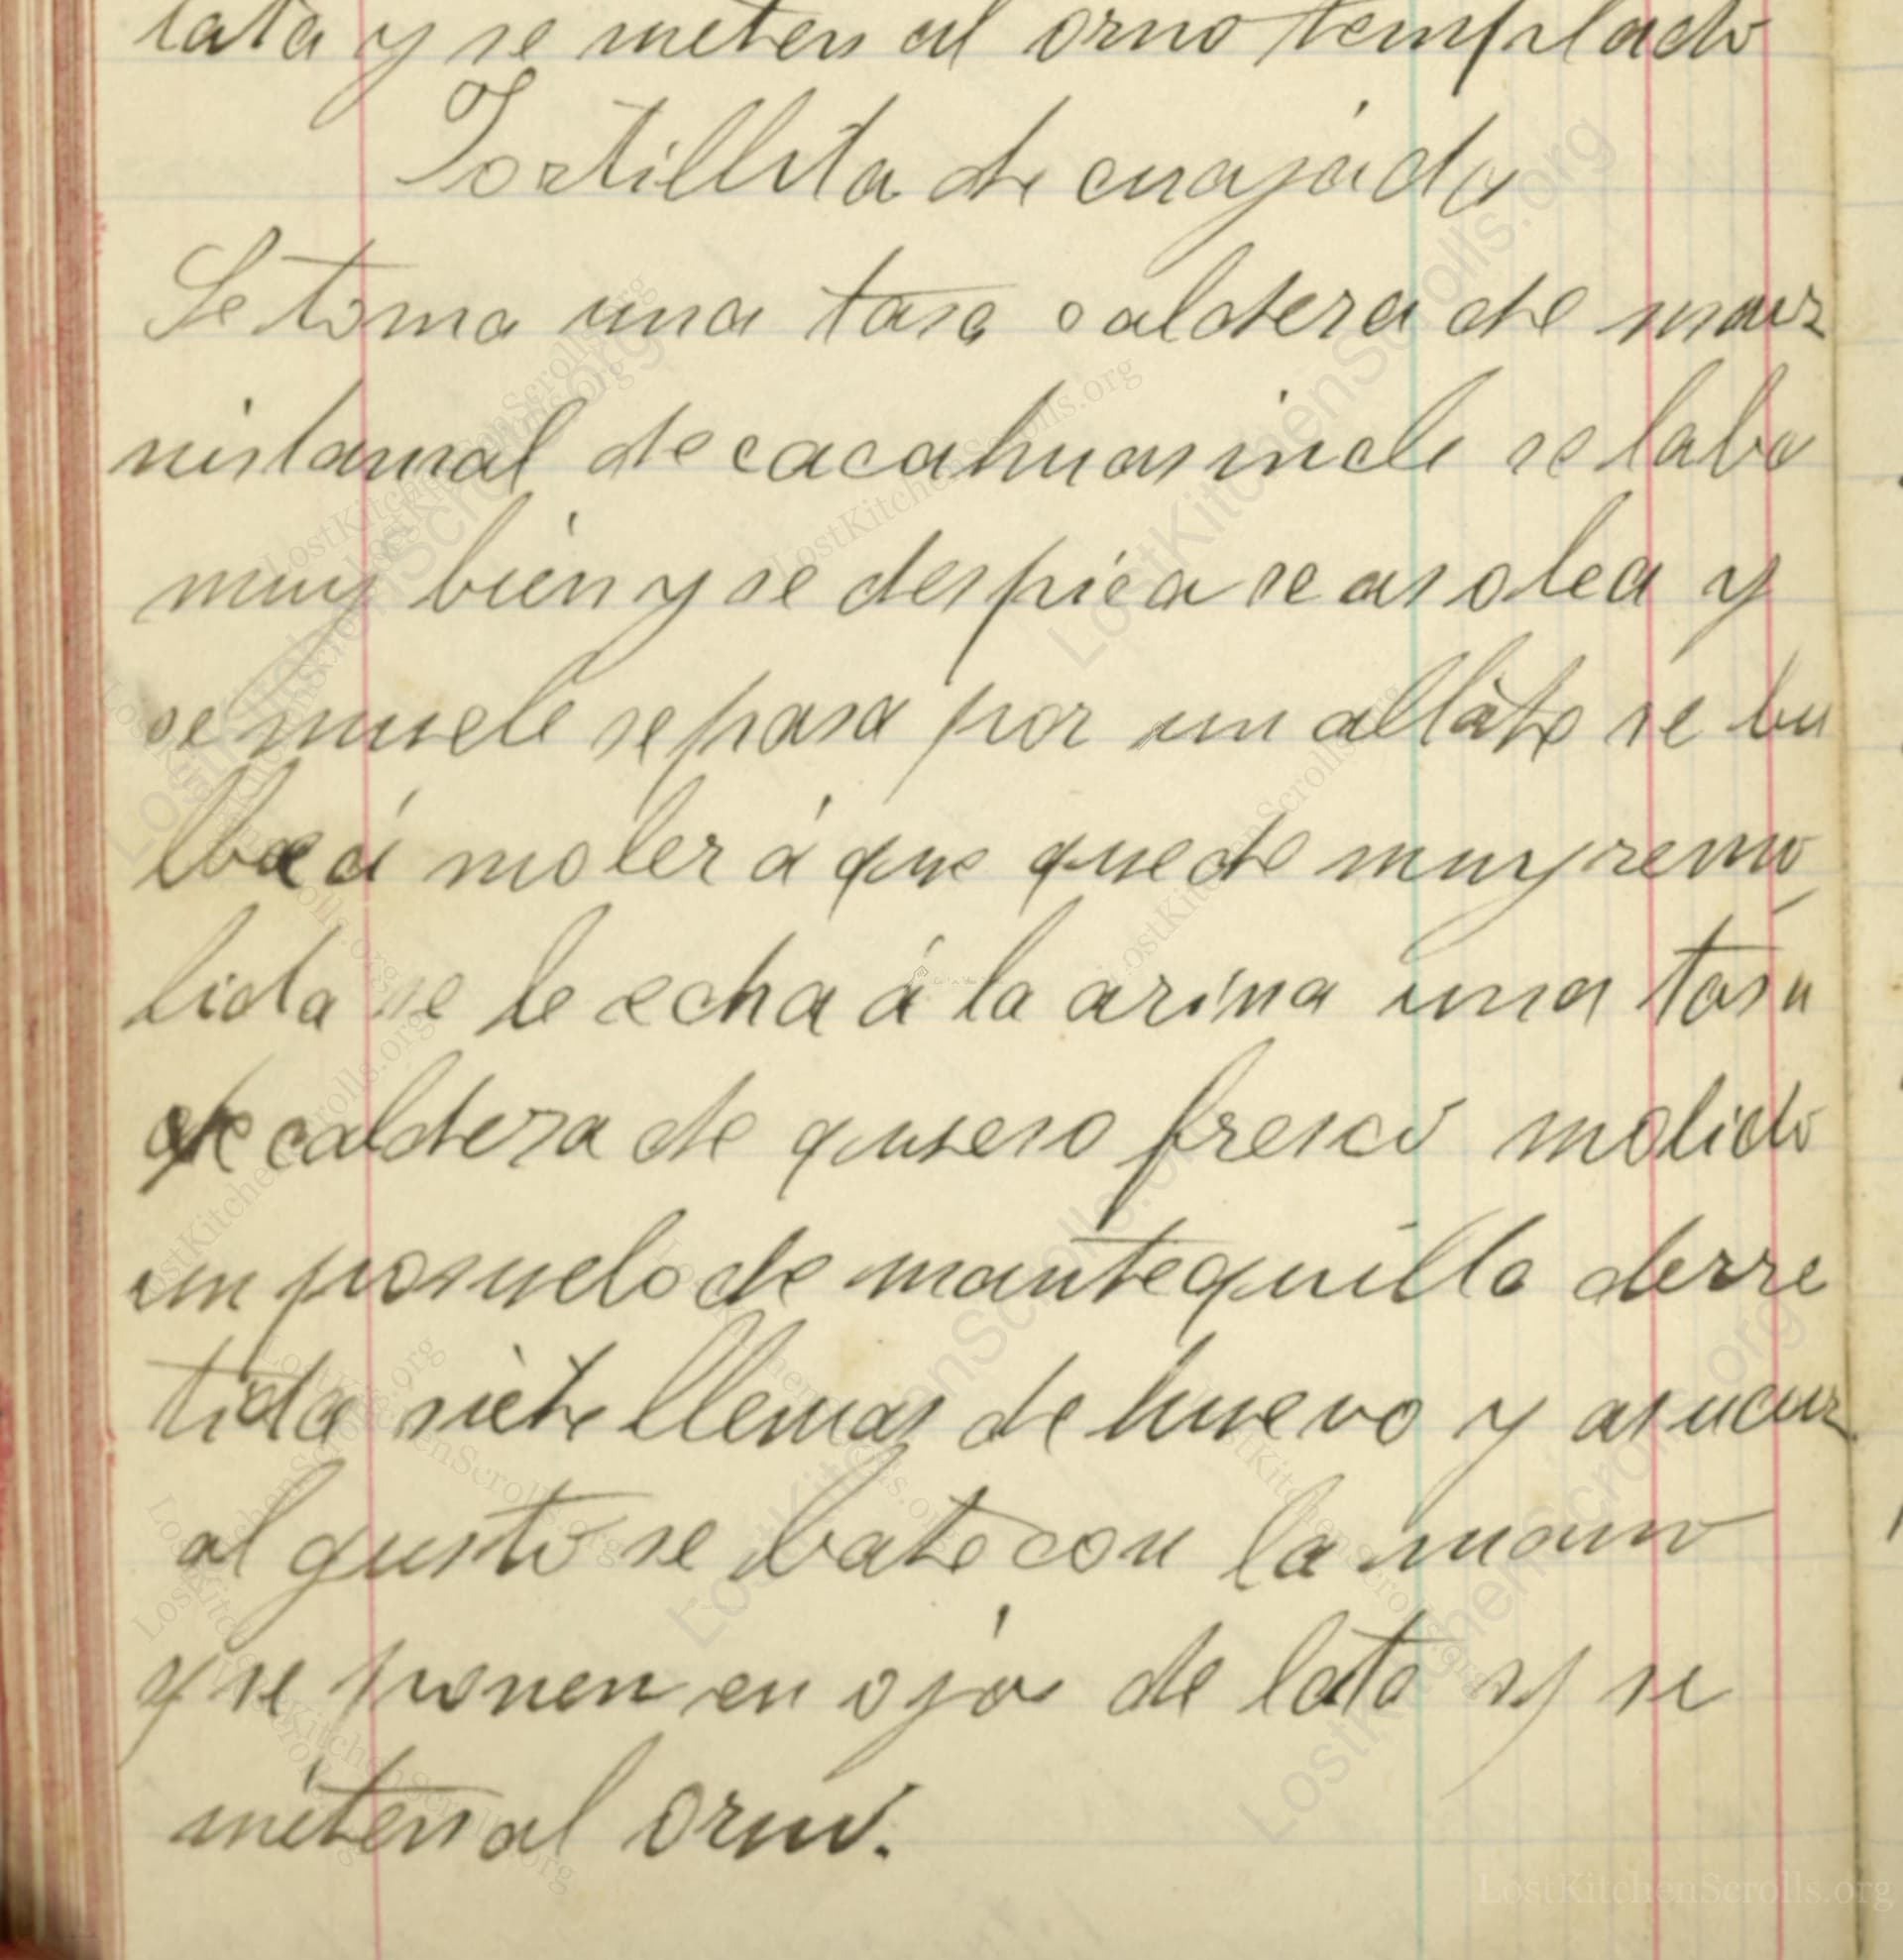 lata y se meten al orno templado
Tortillita de cuajada
Se toma una tasa caldera de mais
nistamal de cacahuasincle se laba
muy bien y se despica se asolea y
se muele se pasa por un allate se bu
lbe á moler á que quede muy remo
lida se le echa á la arina una tasa
de caldera de queso fresco molido
un posuelo de mantequilla derre
tida siete llemas de huevo y asucar
al gusto se bate con la mano
y se ponen en ojas de lata y se
meten al orno.
LostKitchenScrolls.org